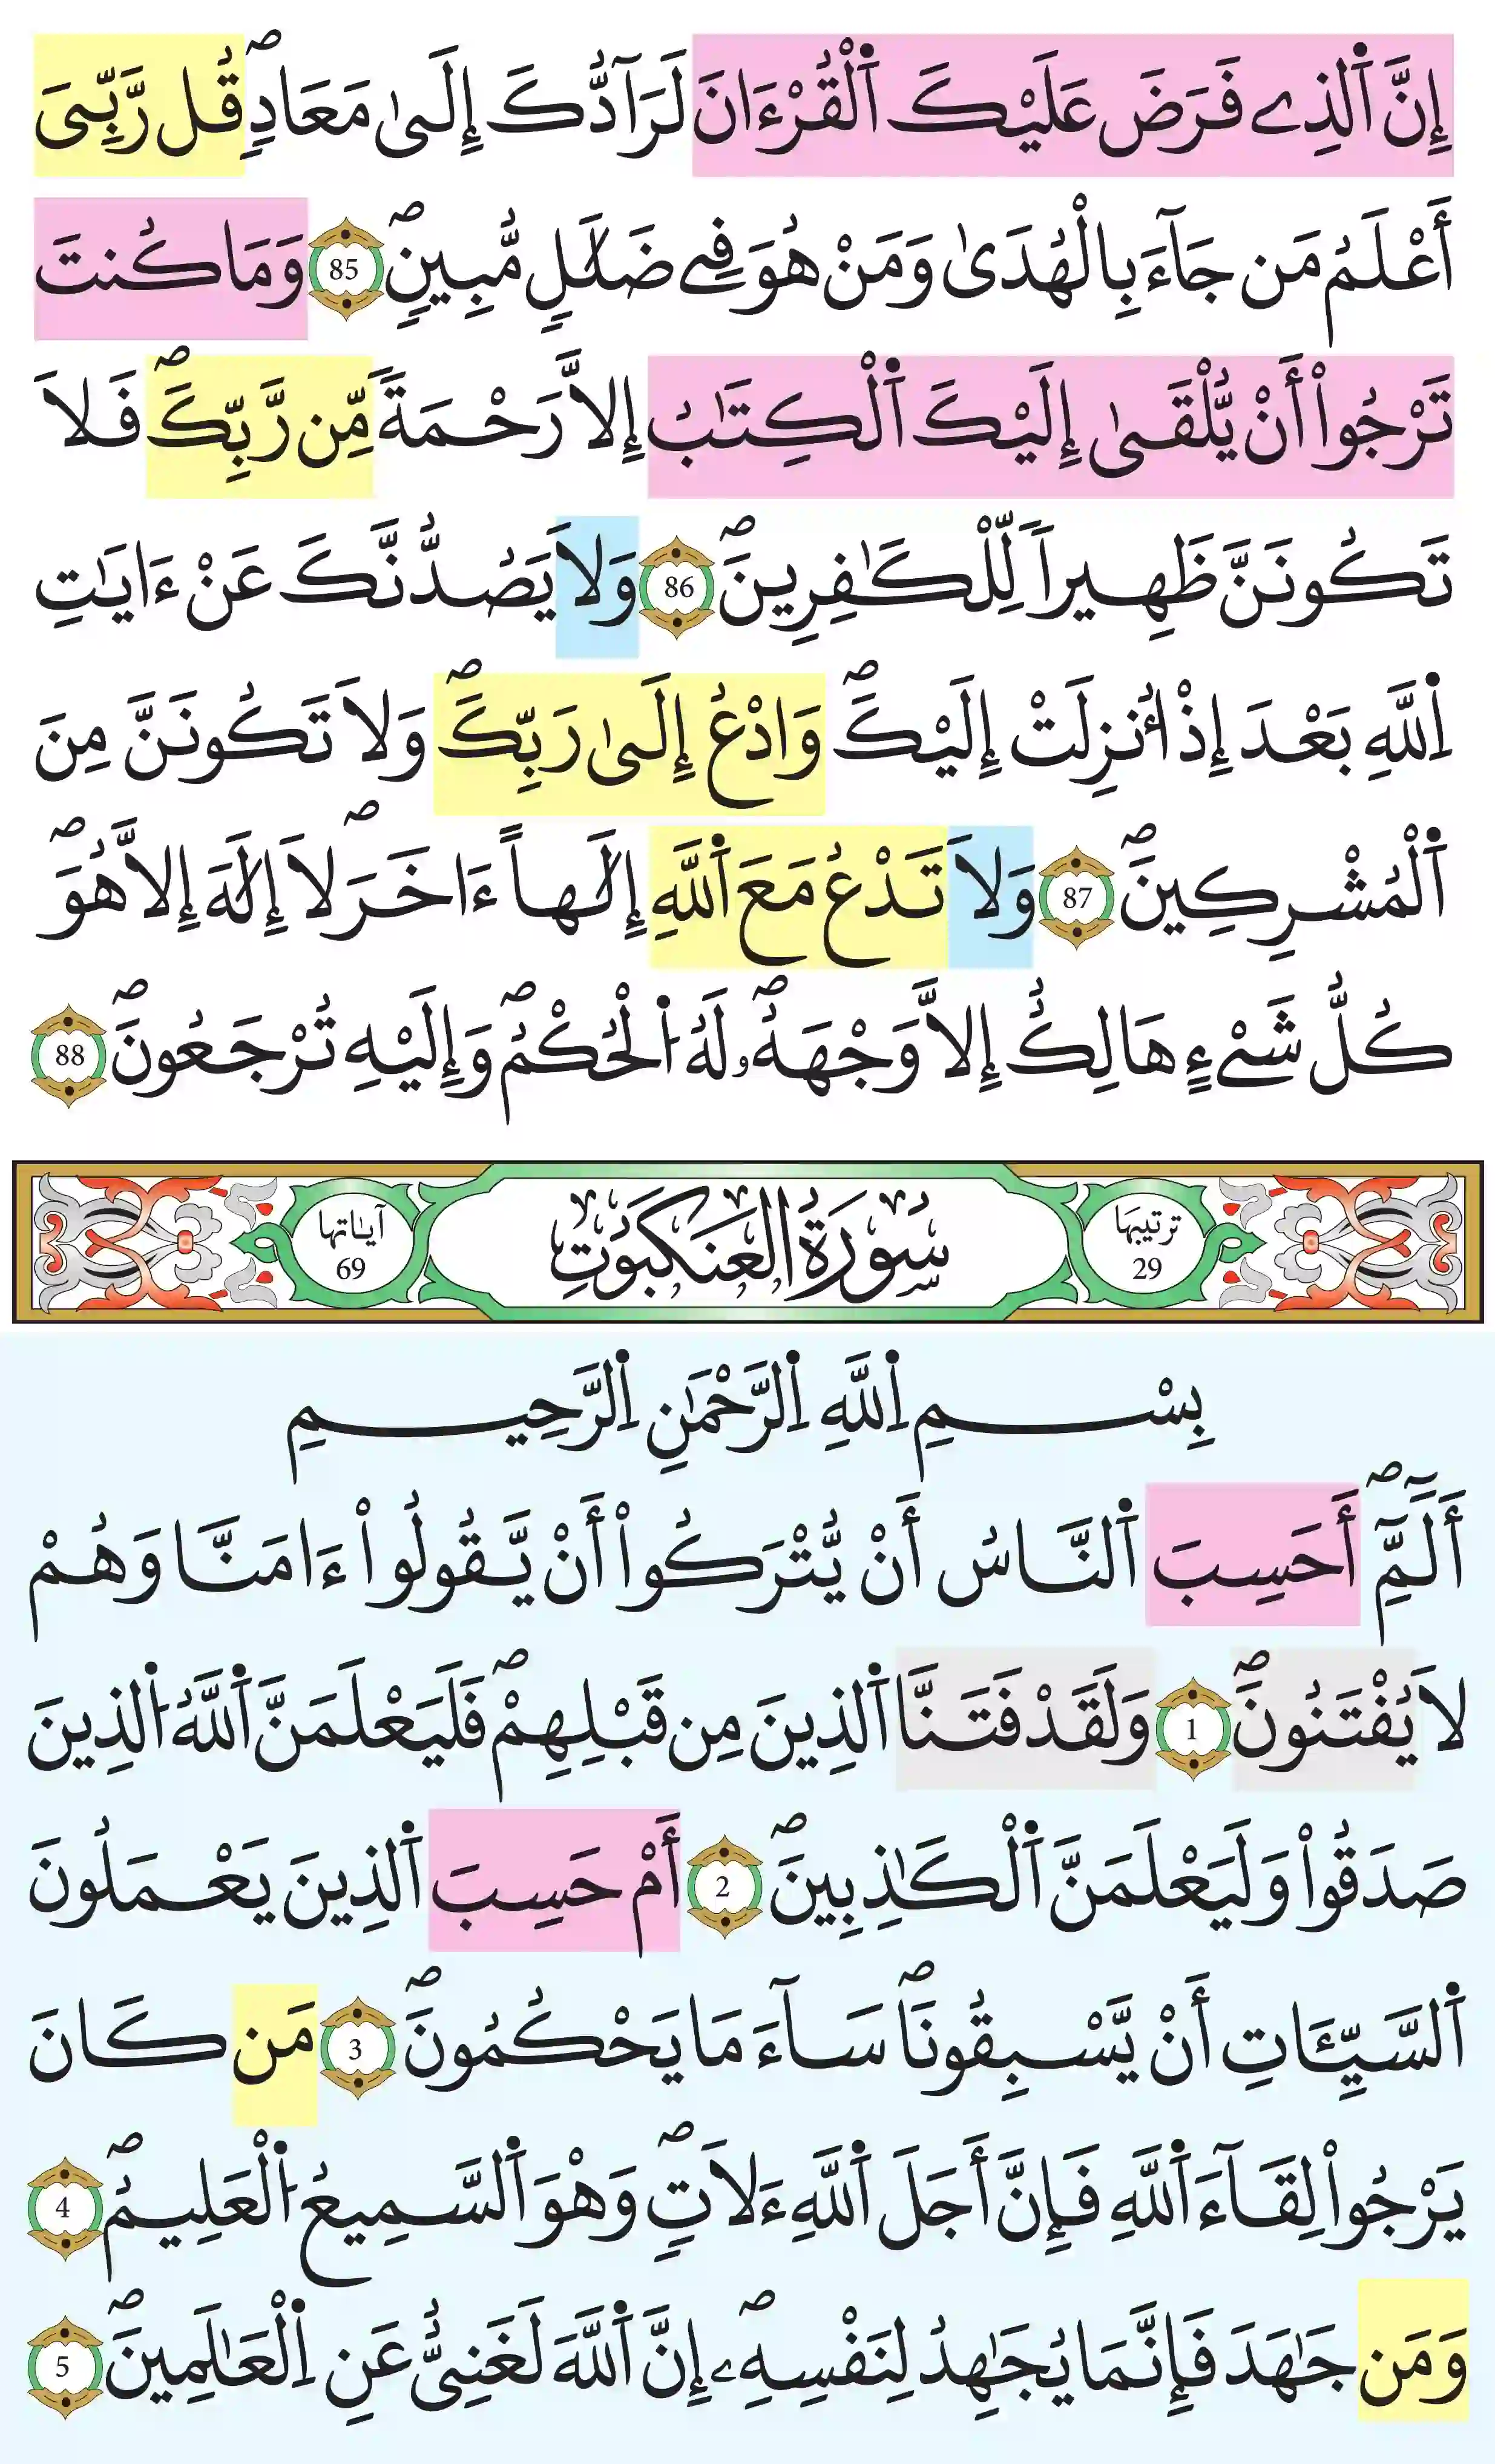 إِنَّ ٱلَذِے فَرَضَ عَلَيْكَ ٱلْقُرْءَانَ لَرَآدُّكَ إِلَىٰ مَعَادٖۖ قُل رَّبِّىَ
أَعْلَمُ مَن جَآءَ بِالْهُدَىٰ وَمَنْ هُوَ فِے ضَلَٰلٖ مُّبِينٖۖ 85 وَمَا كُنتَ
تَرْجُوٓاْ أَنْ يُّلْقَىٰٓ إِلَيْكَ ٱلْكِتَٰبُ إِلاَّ رَحْمَةٗ مِّن رَّبِّكَۖ فَلاَ
تَكُونَنَّ ظَهِيراٗ لِّلْكَٰفِرِينَۖ 86 وَلاَ يَصُدُّنَّكَ عَنْ ءَايَٰتِ
اِ۬للَّهِ بَعْدَ إِذُ ا۟نزِلَتْ إِلَيْكَۖ وَادْعُ إِلَىٰ رَبِّكَۖ وَلاَ تَكُونَنَّ مِنَ
ٱلْمُشْرِكِينَۖ 87 وَلاَ تَدْعُ مَعَ ٱللَّهِ إِلَٰهاً ءَاخَرَۖ لاَ إِلَٰهَ إِلاَّ هُوَۖ
كُلُّ شَےْءٍ هَالِكٌ إِلاَّ وَجْهَهُۥۖ لَهُ ا۬لْحُكْمُۖ وَإِلَيْهِ تُرْجَعُونَۖ 88
ترتيبها 29 سُورَةُ العَنكَبُوتِ آياتها 69
بِسْمِ اِ۬للَّهِ اِ۬لرَّحْمَٰنِ اِ۬لرَّحِيمِ
أَلَٓمِّٓۖ أَحَسِبَ ٱلنَّاسُ أَنْ يُّتْرَكُوٓاْ أَنْ يَّقُولُوٓاْ ءَامَنَّا وَهُمْ
لاَ يُفْتَنُونَۖ 1 وَلَقَدْ فَتَنَّا ٱلَذِينَ مِن قَبْلِهِمْۖ فَلَيَعْلَمَنَّ ٱللَّهُ ا۬لَذِينَ
صَدَقُواْ وَلَيَعْلَمَنَّ ٱلْكَٰذِبِينَۖ 2 أَمْ حَسِبَ ٱلَذِينَ يَعْمَلُونَ
ٱلسَّيِّـَٔاتِ أَنْ يَّسْبِقُونَاۖ سَآءَ مَا يَحْكُمُونَۖ 3 مَن كَانَ
يَرْجُواْ لِقَآءَ ٱللَّهِ فَإِنَّ أَجَلَ ٱللَّهِ ءَلاَتٖۖ وَهْوَ ٱلسَّمِيعُ ا۬لْعَلِيمُۖ 4
وَمَن جَٰهَدَ فَإِنَّمَا يُجَٰهِدُ لِنَفْسِهِۦٓۖ إِنَّ ٱللَّهَ لَغَنِىٌّ عَنِ اِ۬لْعَٰلَمِينَۖ 5